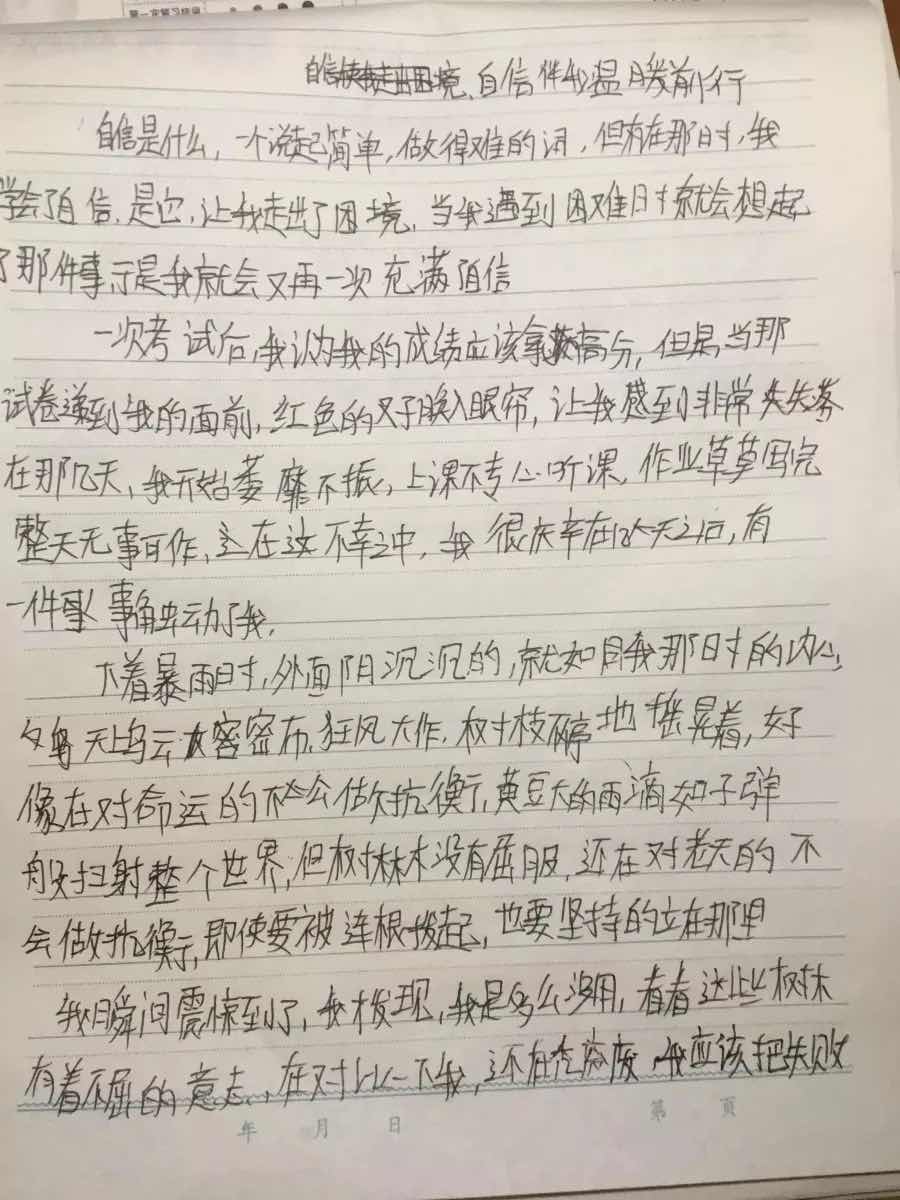 第一定算习
自信伴我温暖前行
自信是什么,一个说起简单,做得难的词,但有在那时,我
学会了自信.是它,让我走出了困境.当我遇到困难时就会想起
了那件事于是我就会又再一次充满自信
一次考试后,我认为我的成绩应该拿高分,但是,当那
试卷递到我的面前,红色的叉子映入眼帘,让我感到非常失落
在那几天,我开始萎靡不振,上课不专心听课,作业草草写完
整天无事可作,在这不幸之中,我很庆幸在天之后,有
一件事触动了我.
下着暴雨时,外面阴沉沉的,就如同我那时的内心,
天上乌云密布.狂风大作.树枝不停地摇晃着,好
像在对命运的不公做抗衡,黄豆大的雨滴如子弹
般扫射整个世界,但树林没有屈服,还在对老天的不
会做抗衡,即使要被连根拨起,也要坚持的立在那里
我瞬间震惊到了,我才发现,我是多么没用,看看这些树林
有着不屈的意志,在对比一下我,还在颓废.我应该把失败
年 月 日 第 頁